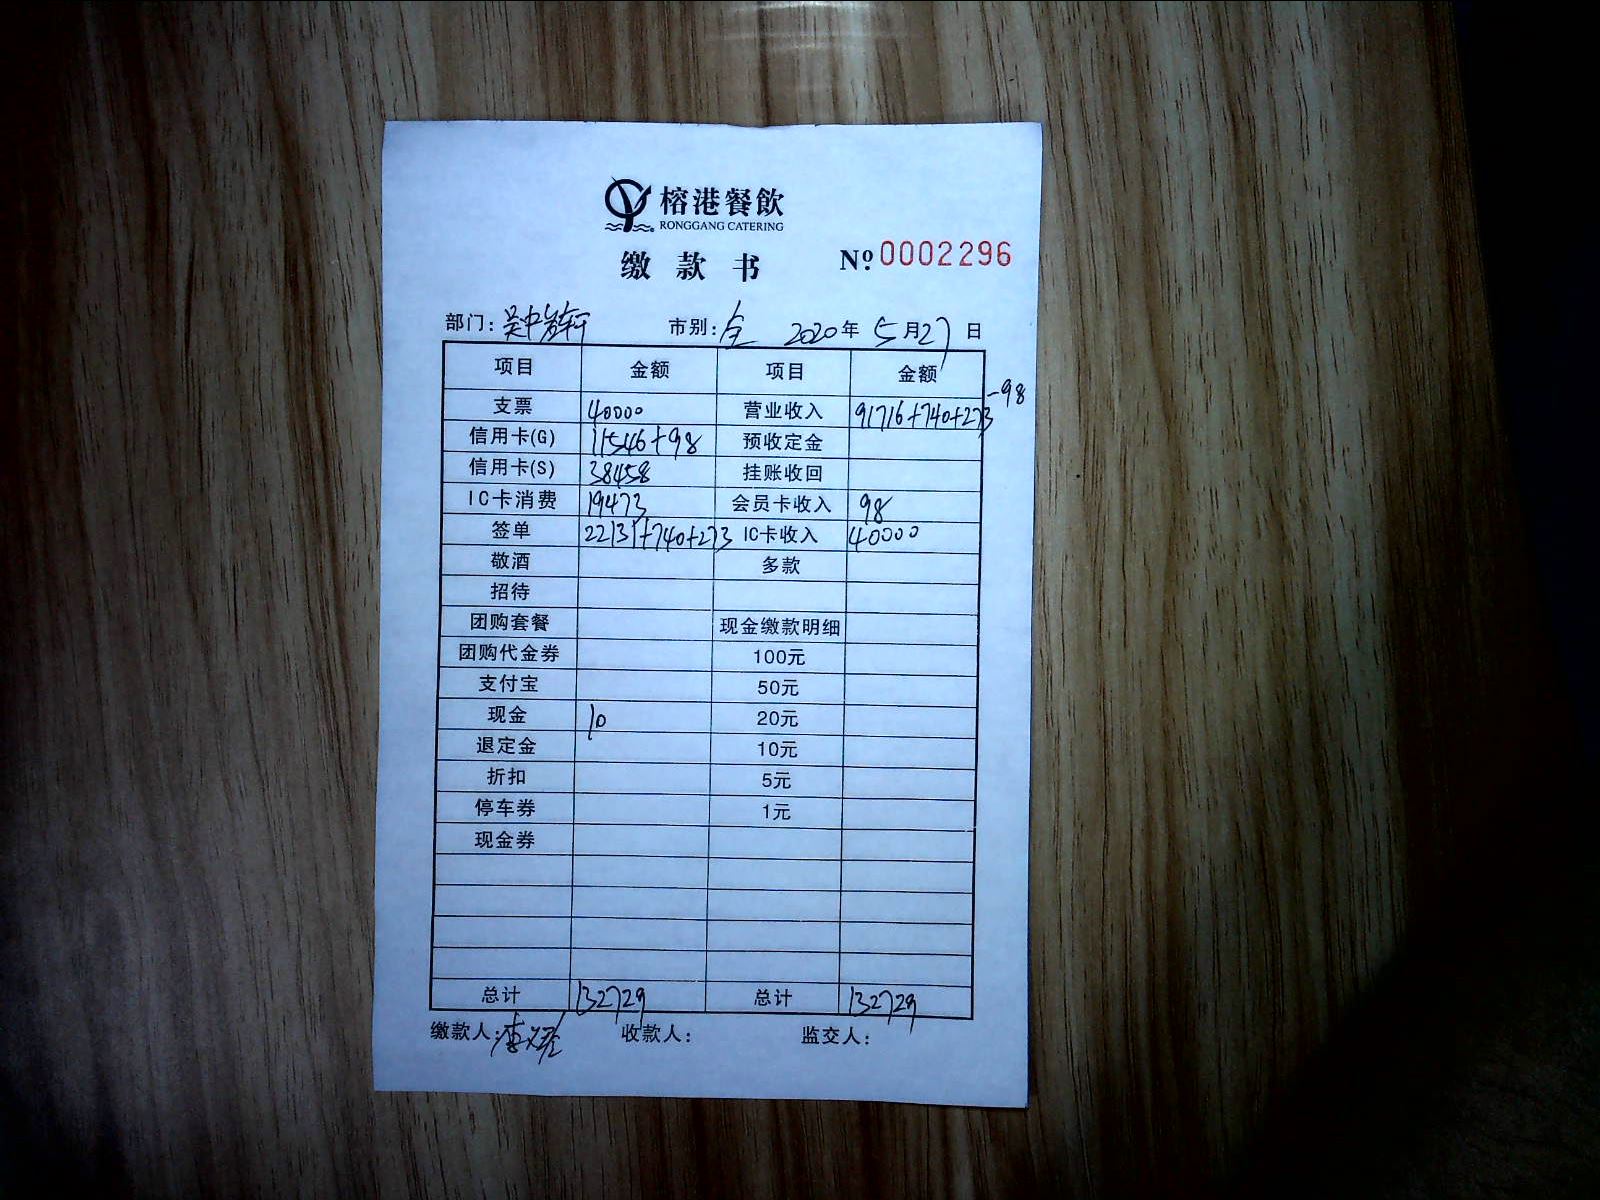 榕港餐飲
RONGGANG CATERING
缴款书 Nº 0002296
部门: 吴中 市别: 全 2020年 5月27日
项目 金额 项目 金额
-98
支票 40000 营业收入 91716+740+273
信用卡(G) 11546+98 预收定金
信用卡(S) 38458 挂账收回
IC卡消费 19473 会员卡收入 98
签单 22131+740+273 IC卡收入 40000
敬酒 多款
招待
团购套餐 现金缴款明细
团购代金券 100元
支付宝 50元
现金 10 20元
退定金 10元
折扣 5元
停车券 1元
现金券
总计 132729 总计 132729
缴款人: 李 收款人: 监交人: